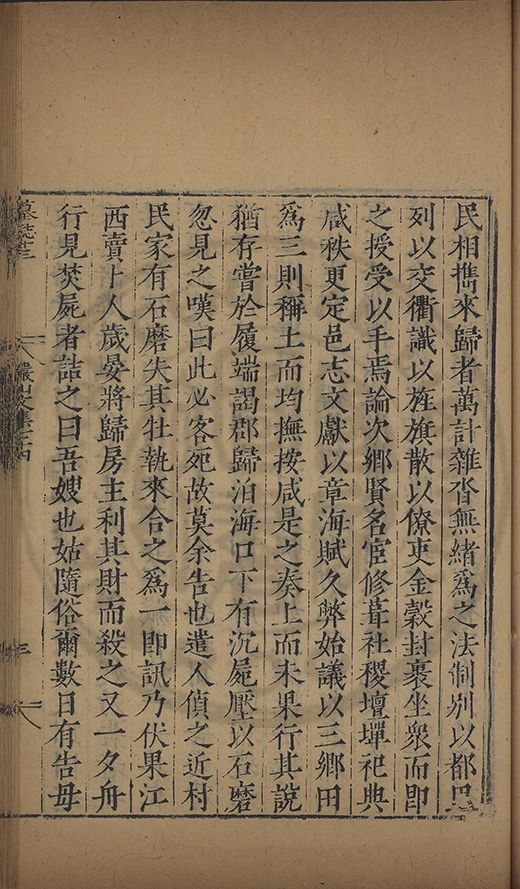 民相攜來歸者萬計雜沓無緒爲之法制別以都
列以交衢識以旌旗散以僚吏金穀封裹坐衆而卽
之授受以手焉論次鄉賢名宦修葺社稷壇墠祀典
咸秩更定邑志文獻以章海賦久弊始議以三鄉田
爲三則稱土而均撫按咸是之奏上而未果行其說
猶存嘗於履端謁郡歸泊海口下有沉屍壓以石磨
忽見之嘆曰此必客死故莫余告也遣人偵之近村
民家有石磨失其牡執來合之爲一卽訊乃伏果江
西賣卜人歲晏將歸房主利其財而殺之又一夕舟
行見焚屍者詰之曰吾嫂也姑隨俗爾數日有告毋
墓誌
三